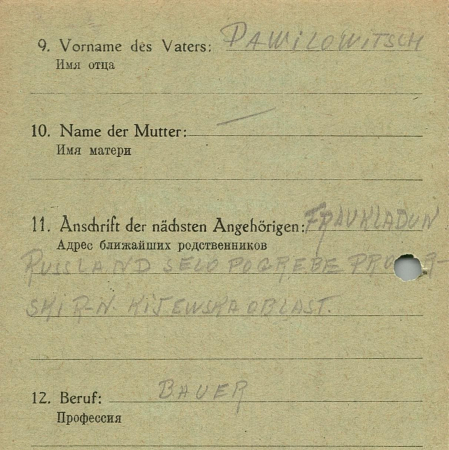 9. Vorname des Vaters: PAWILOWITSCH
Имя отца
10. Name der Mutter: —
Имя матери
11. Anschrift der nächsten Angehörigen: FRAU KLADUN
Адрес ближайших родственников
RUSSLAND SELO POGREBE
SKI R-N. KIJEWSKA OBLAST.
12. Beruf: BAUER
Профессия